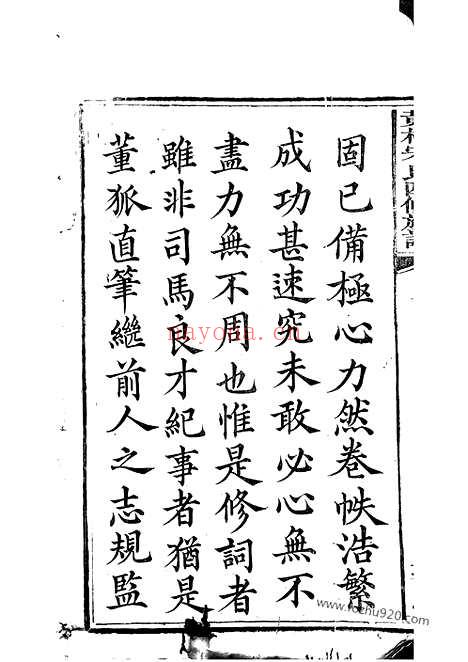 固已備極心力然卷帙浩繁
成功甚速究未敢必心無不
盡力無不周也惟是修詞者
雖非司馬良才紀事者猶是
董狐直筆繼前人之志規監
nayona.cn